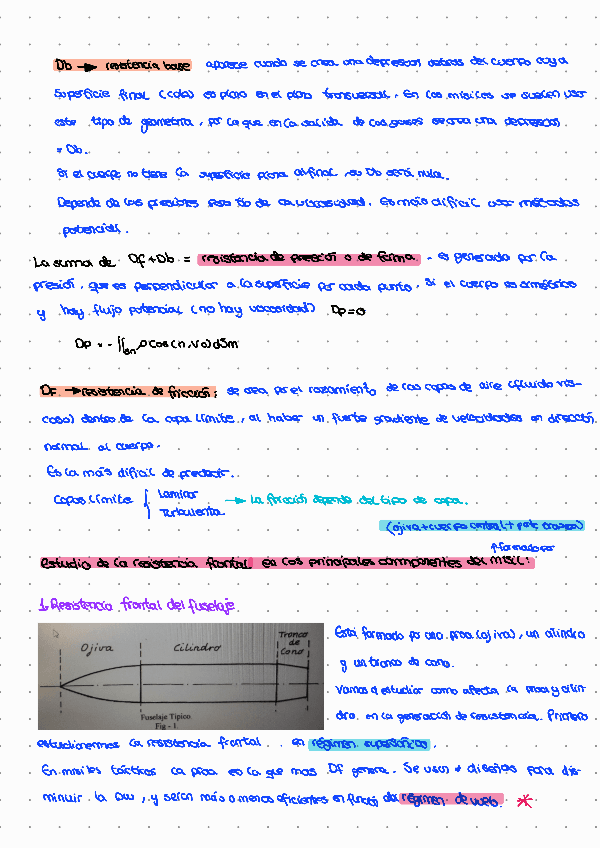 Db → resistencia base aparece cuando se crea una depresion detras del cuerpo cuya
superficie final (cola) es plano en el plano transversal. En los misiles se suelen usar
este tipo de geometria, por lo que en la salida de los gases se crea una depresion
= Db.
Si el cuerpo no tiene la superficie plana al final, su Db será nula.
Depende de las presiones pero tb de la viscosidad. Es más dificil usar métodos
potenciales.
La suma de Df + Db = resistencia de presión o de forma - es generada por la
presión, que es perpendicular a la superficie por cada punto. Si el cuerpo es simétrico
y hay flujo potencial (no hay viscosidad) Dp = 0
Dp = - ∫∫ p cos (n, Vo) dSm
DF → resistencia de fricción: se crea por el rozamiento de las capas de aire (fluido vis-
coso) dentro de la capa límite, al haber un fuerte gradiente de velocidades en dirección
normal al cuerpo.
Es la más dificil de predecir.
Capas límite { Laminar
Turbulenta → La fricción depende del tipo de capa.
(ojiva + cuerpo central (+ parte trasera)
↑ formado por
Estudio de la resistencia frontal en los principales componentes del misil:
1. Resistencia frontal del fuselaje
Ojiva Cilindro Tronco de Cono
Fuselaje Típico
Fig - 1.
Está formado por una proa (ojiva), un cilindro
y un tronco de cono.
Vamos a estudiar como afecta la proa y cilin-
dro en la generación de resistencia. Primero
estudiaremos la resistencia frontal en régimen supersónico.
En misiles tácticos la proa es la que mas Df genera. Se usan ≠ diseños para dis-
minuir la Dw, y serán más o menos eficientes en función del régimen de vuelo. *